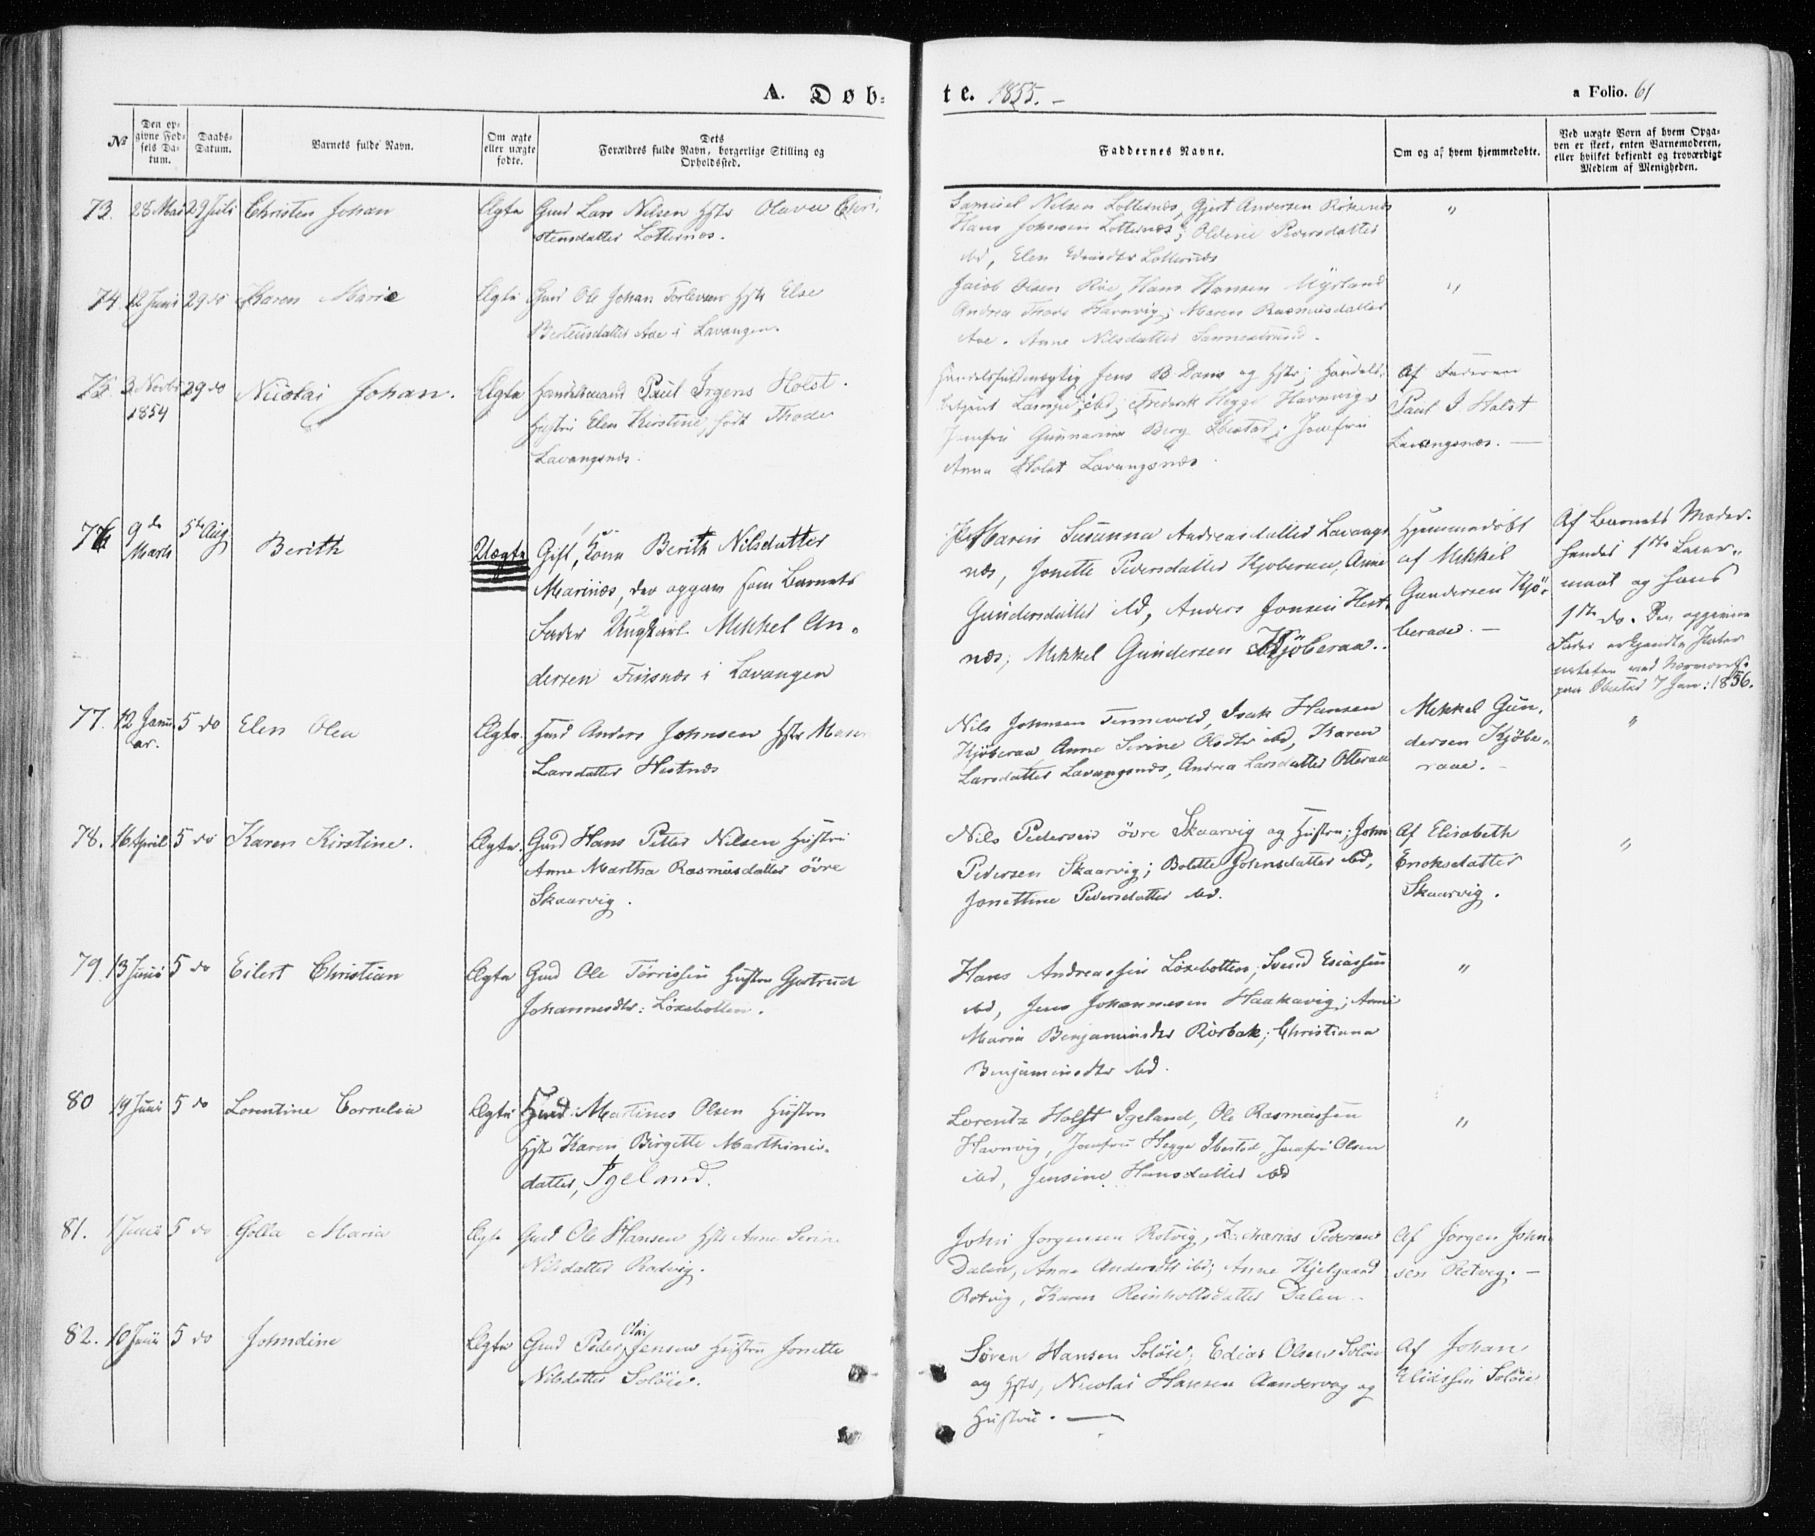 A. Døb-te. 1855.
a Folio. 61
№
Den op-
givne Fød-
sels Da-
tum.
Daabs-
Datum.
Barnets fulde Navn.
Om ægte
eller uægte
fødte.
Dets
Forældres fulde Navn, borgerlige Stilling og
Opholdssted.
Faddernes Navne.
Om og af hvem hjemmedøbte.
Ved uægte Børn af hvem Opga-
ven er skeet, enten Barnemoderen,
eller hvilket bekjendt og troværdigt
Medlem af Menigheden.
73. 28 Mai 29 Juli Christen Johan Ægte Gmd Lars Nilsen Hstr Olava Chri-
stensdatter Lotternæs.
Samuel Nilsen Lotternæs, Gjert Andersen
Hans Johnsen Lotternæs; Oldine Pedersdatter
ibd, Elen Lotternæs
"
74. 12 Juni 29 do Karen Marie Ægte Gmd Ole Johan Torlevsen Hstr Else
Berteusdatter Aae i Lavangen.
Jacob Olsen Hans Hansen Myrland
Andrea Havnvig; Maren Rasmusdatter
Aae. Anne Nilsdatter
"
75. 3 Novbr
1854
29 do Nicolai Johan. Ægte Handelsmand Paul Irgens Holst.
Hustru Elen Kirstine, født Thode
Lavangsnæs.
Jens B Dons og Hstr; Handels-
ibd; Frederik Hegge Havnvig
Jomfru Gunnarine Berg Ibestad; Jomfru
Anna Holst Lavangsnæs.
Af Faderen
Paul I. Holst
Lavangsnæs.
76 9de
Marts
5te Aug Berith Uægte Gift Kone Berith Nilsdatter
Marinæs, der opgav som Barnets
Fader Ungkarl Mikkel An-
dersen Finsnæs i Lavangen
Maren Susanna Andreasdatter Lavangs-
næs, Jonette Pedersdatter Kjøberaa, Anne
Gundersdatter ibd, Anders Jonsen Hest-
næs; Mikkel Gundersen Kjøberaa.
Hjemmedøbt
af Mikkel
Gundersen Kjö-
beraae.
Af Barnets Moder.
hendes 1ste Leier-
maal og hans
1ste do. Den opgivne
Fader
Ibestad 7 Jan: 1856.
77. 12 Janu-
ar.
5 do Elen Olea Ægte. Gmd Anders Johnsen Hstr Maren
Larsdatter Hestnæs
Nils Johnsen Tennevold, Isak Hansen
Kjøberaa Anne Serine Olsdtr ibd, Karen
Larsdatter Lavangsnæs, Andrea Larsdatter Otteraa
Mikkel Gun-
dersen Kjøbe-
raae.
"
78. 16 April 5 do Karen Kirstine. Ægte. Gmd Hans Petter Nilsen Hustru
Anne Martha Rasmusdatter övre
Skaarvig.
Nils Pedersen övre Skaarvig og Hustru; John
Pedersen Skaarvig; Bolette Johnsdatter ibd,
Jonettine Pedersdatter ibd.
Af Elisabeth
Enoksdatter
Skaarvig.
"
79. 13 Juni 5 do Eilert Christian Ægte Gmd Ole Törrissen Hustru Gjertrud
Johannesdtr: Löxebotten.
Hans Andreassen Löxebotten; Svend Esiassen
ibd, Jens Johannesen Haakavig; Anne
Maria Benjaminsdtr Rörbak; Christiana
Benjaminsdtr ibd.
"
80 19 Juni 5 do Lorentine Cornelia Ægte Gmd: Martines Olsen Hustru
Hstr Karen Birgette Marthinis-
datter, Igeland.
Lorentz Holst Igeland, Ole Rasmussen
Havnvig, Jomfru Hegge Ibestad, Jomfru Olsen
ibd, Jensine Hansdatter ibd
"
81. 1 Juni 5 do Golla Maria Ægte Gmd Ole Hansen Hstr Anne Serine
Nilsdatter Rodvig.
John Jörgensen Rotvig, Zacharias Pedersen
Dalen, Anna Andersdtr ibd; Anne Kjelgaard
Rotvig, Karen Reinholtsdatter Dalen
Af Jörgen John-
sen Rotvig.
82. 10 Juni 5 do Johndine Ægte Gmd Peder Olai Jensen Hustru Jonette
Nilsdatter Solöie.
Sören Hansen Solöie; Edias Olsen Solöie
og Hstr, Nicolai Hansen Aandervag og
Hustru.
Af Johan
Eliassen Solöie